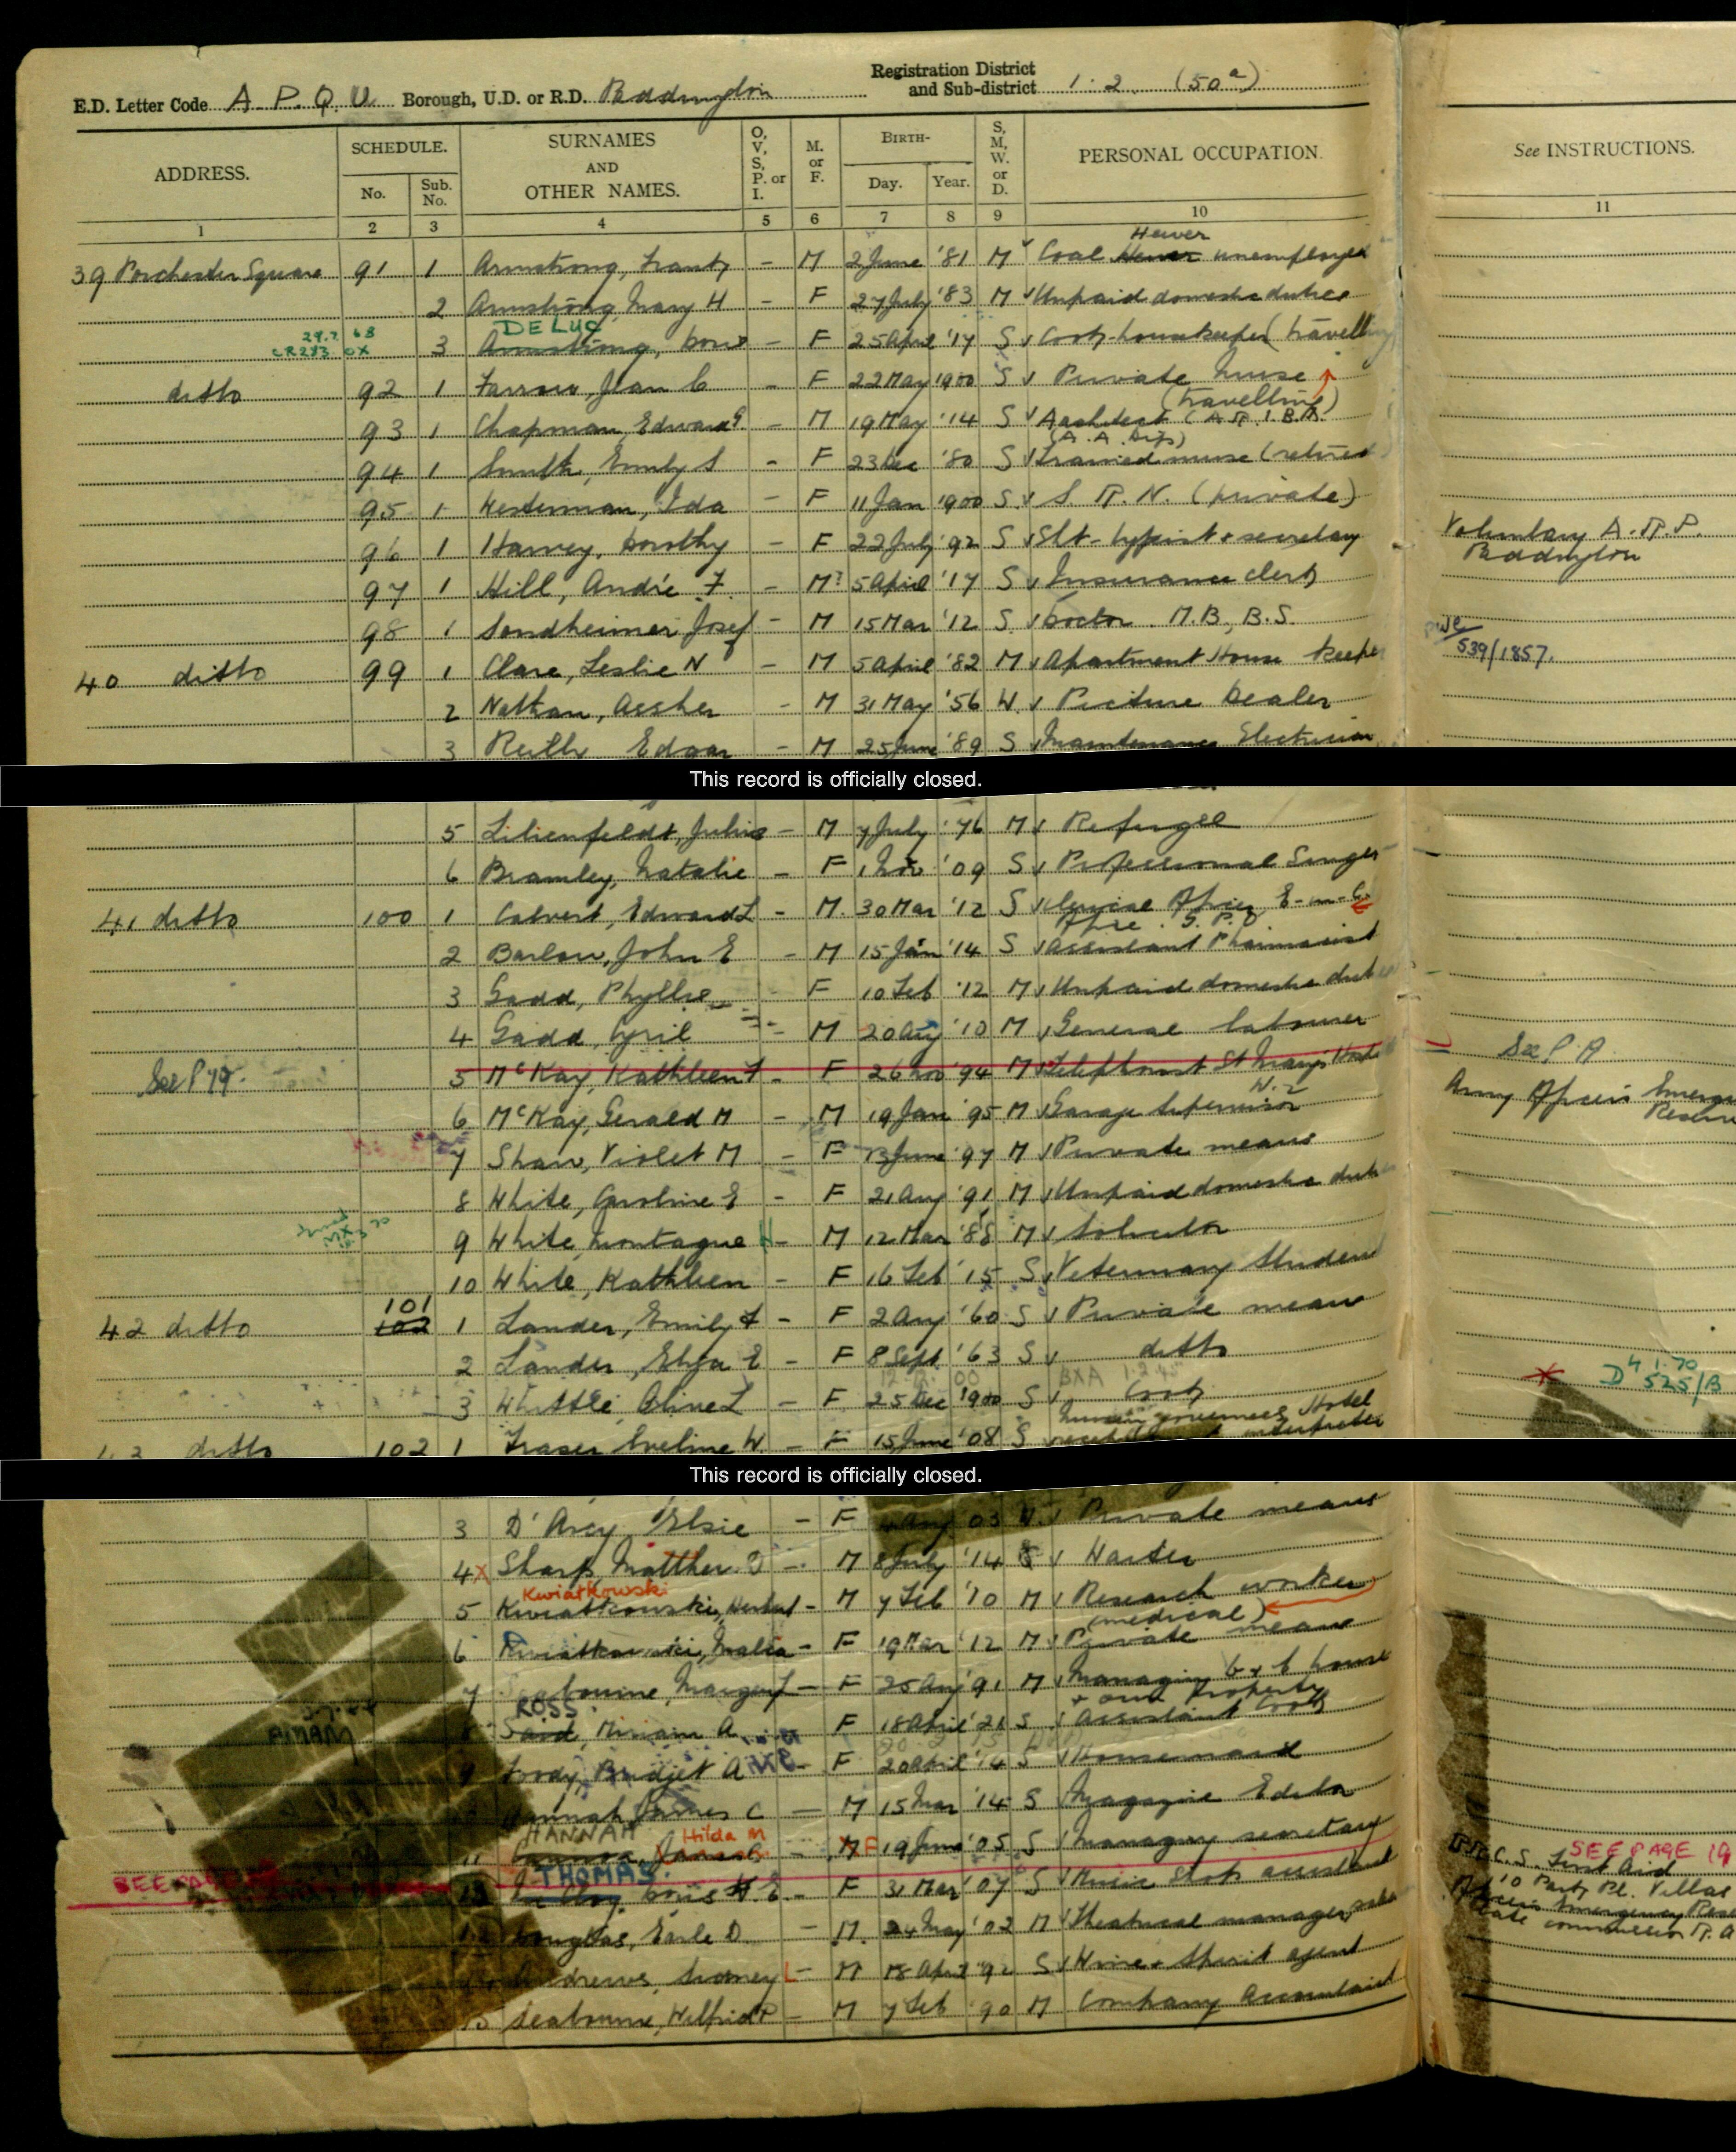 E.D. Letter Code A.P.Q.U. Borough, U.D. or R.D. Paddington Registration District and Sub-district 1.2. (50a)
ADDRESS. SCHEDULE. No. Sub. No. SURNAMES AND OTHER NAMES. O, V, S, P. or I. M. or F. BIRTH- Day. Year. S, M, W. or D. PERSONAL OCCUPATION. See INSTRUCTIONS.
1 2 3 4 5 6 7 8 9 10 11
Hewer
39 Porchester Square 91 1 Armstrong, Frank - M 2 June '81 M Coal unemployed
2 Armstrong, Mary H - F 27 July '83 M Unpaid domestic duties
DE LUC
29.7.63 CR283 OX 3 Armstrong, Doris - F 25 April '17 S Cook-housekeeper (travelling
ditto 92 1 Farrow, Jean C - F 22 May 1900 S Private Nurse
(travelling)
93 1 Chapman, Edward G - M 19 May '14 S Architect (A.R.I.B.A.
(A.A. Dip)
94 1 Smith, Emily S - F 23 Dec '80 S Trained nurse (retired
95 1 Westerman, Ida - F 11 Jan 1900 S S.R.N. (private)
96 1 Harvey, Dorothy - F 22 July '92 S Sht-typist & secretary Voluntary A.R.P. Paddington
97 1 Hill, André F. - M? 5 April '17 S Insurance clerk
98 1 Sondheimer, Josef - M 15 Mar '12 S Doctor. M.B., B.S.
539/1857.
40 ditto 99 1 Clare, Leslie N - M 5 April '82 M Apartment House keeper
2 Nathan, Assher - M 31 May '56 W. Picture Dealer
3 Edgar - M 25 June '89 S Maintenance Electrician
This record is officially closed.
5 Lilienfeldt, Julius - M 7 July '76 M Refugee
6 Bramley, Natalie - F 1 Nov '09 S Professional Singer
41 ditto 100 1 Calvert, Edward L - M. 30 Mar '12 S Clerical Officer E-in-C
Office. G.P.O.
2 Barlow, John E - M 15 Jan '14 S Assistant Pharmacist
3 Gadd, Phyllis - F 10 Feb '12 M Unpaid domestic dut
4 Gadd, Cyril - M 20 Aug '10 M General labourer
See P 19. 5 McKay, Kathleen F - F 26 Nov '94 M Telephonist St Mary's Hosp See P.19
W.2
6 McKay, Gerald M - M 19 Jan '95 M Garage Supervisor Army Officers Emerge Reserve
7 Shaw, Violet M - F 13 June '97 M Private means
8 White, Caroline E - F 21 Aug '91 M Unpaid domestic dut
9 White, Montague H - M 12 Mar '88 M Solicitor
10 White, Kathleen - F 16 Feb '15 S Veterinary Student
101
42 ditto 102 1 Lander, Emily F - F 2 Aug '60 S Private means
2 Lander, Eliza E - F 8 Sept '63 S ditto
12. 00 BXA 1.2.45 D 4 1.70 525/B
3 Whittle, Olive L - F. 25 Dec 1900 S Cook
ditto 102 1 Fraser, Eveline W. - F 15 June '08 S Nursery governess Hotel receptionist interpreter
This record is officially closed.
3 D'Arcy, Elsie - F Aug 03 W. Private means
4 X Sharp, Matthew D - M 8 July '14 S Waiter
Kwiatkowski
5 Kwiatkowski, Herbert - M 7 Feb '10 M Research worker
(medical)
6 Kwiatkowski, Malia - F 19 Mar '12 M Private means
7 Seabourne, Margery L - F 25 Aug '91 M Managing b & b house
ROSS + own property
8 Said, Miriam A. F 18 April '21 S Assistant Cook
9 Foody, Bridget A - F 20 April '14 S Housemaid
Hannah, James C - M 15 Mar '14 S Magazine Editor
HANNAH Hilda M
11 F 19 June '05 S Managing secretary
SEE PAGE THOMAS Doris E. - F 31 Mar '07 S Music shop assistant SEE PAGE 19
B.R.C.S. First Aid
10 Party Pl. Villas
Douglas, Earle D - M. 24 May '02 M Theatrical manager Officers Emergency Rese
late commission R.A
Andrews, Sidney L - M 18 April '92 S Wine & Spirit agent
15 Seabourne, Wilfrid P - M 7 Feb '90 M Company Accountant